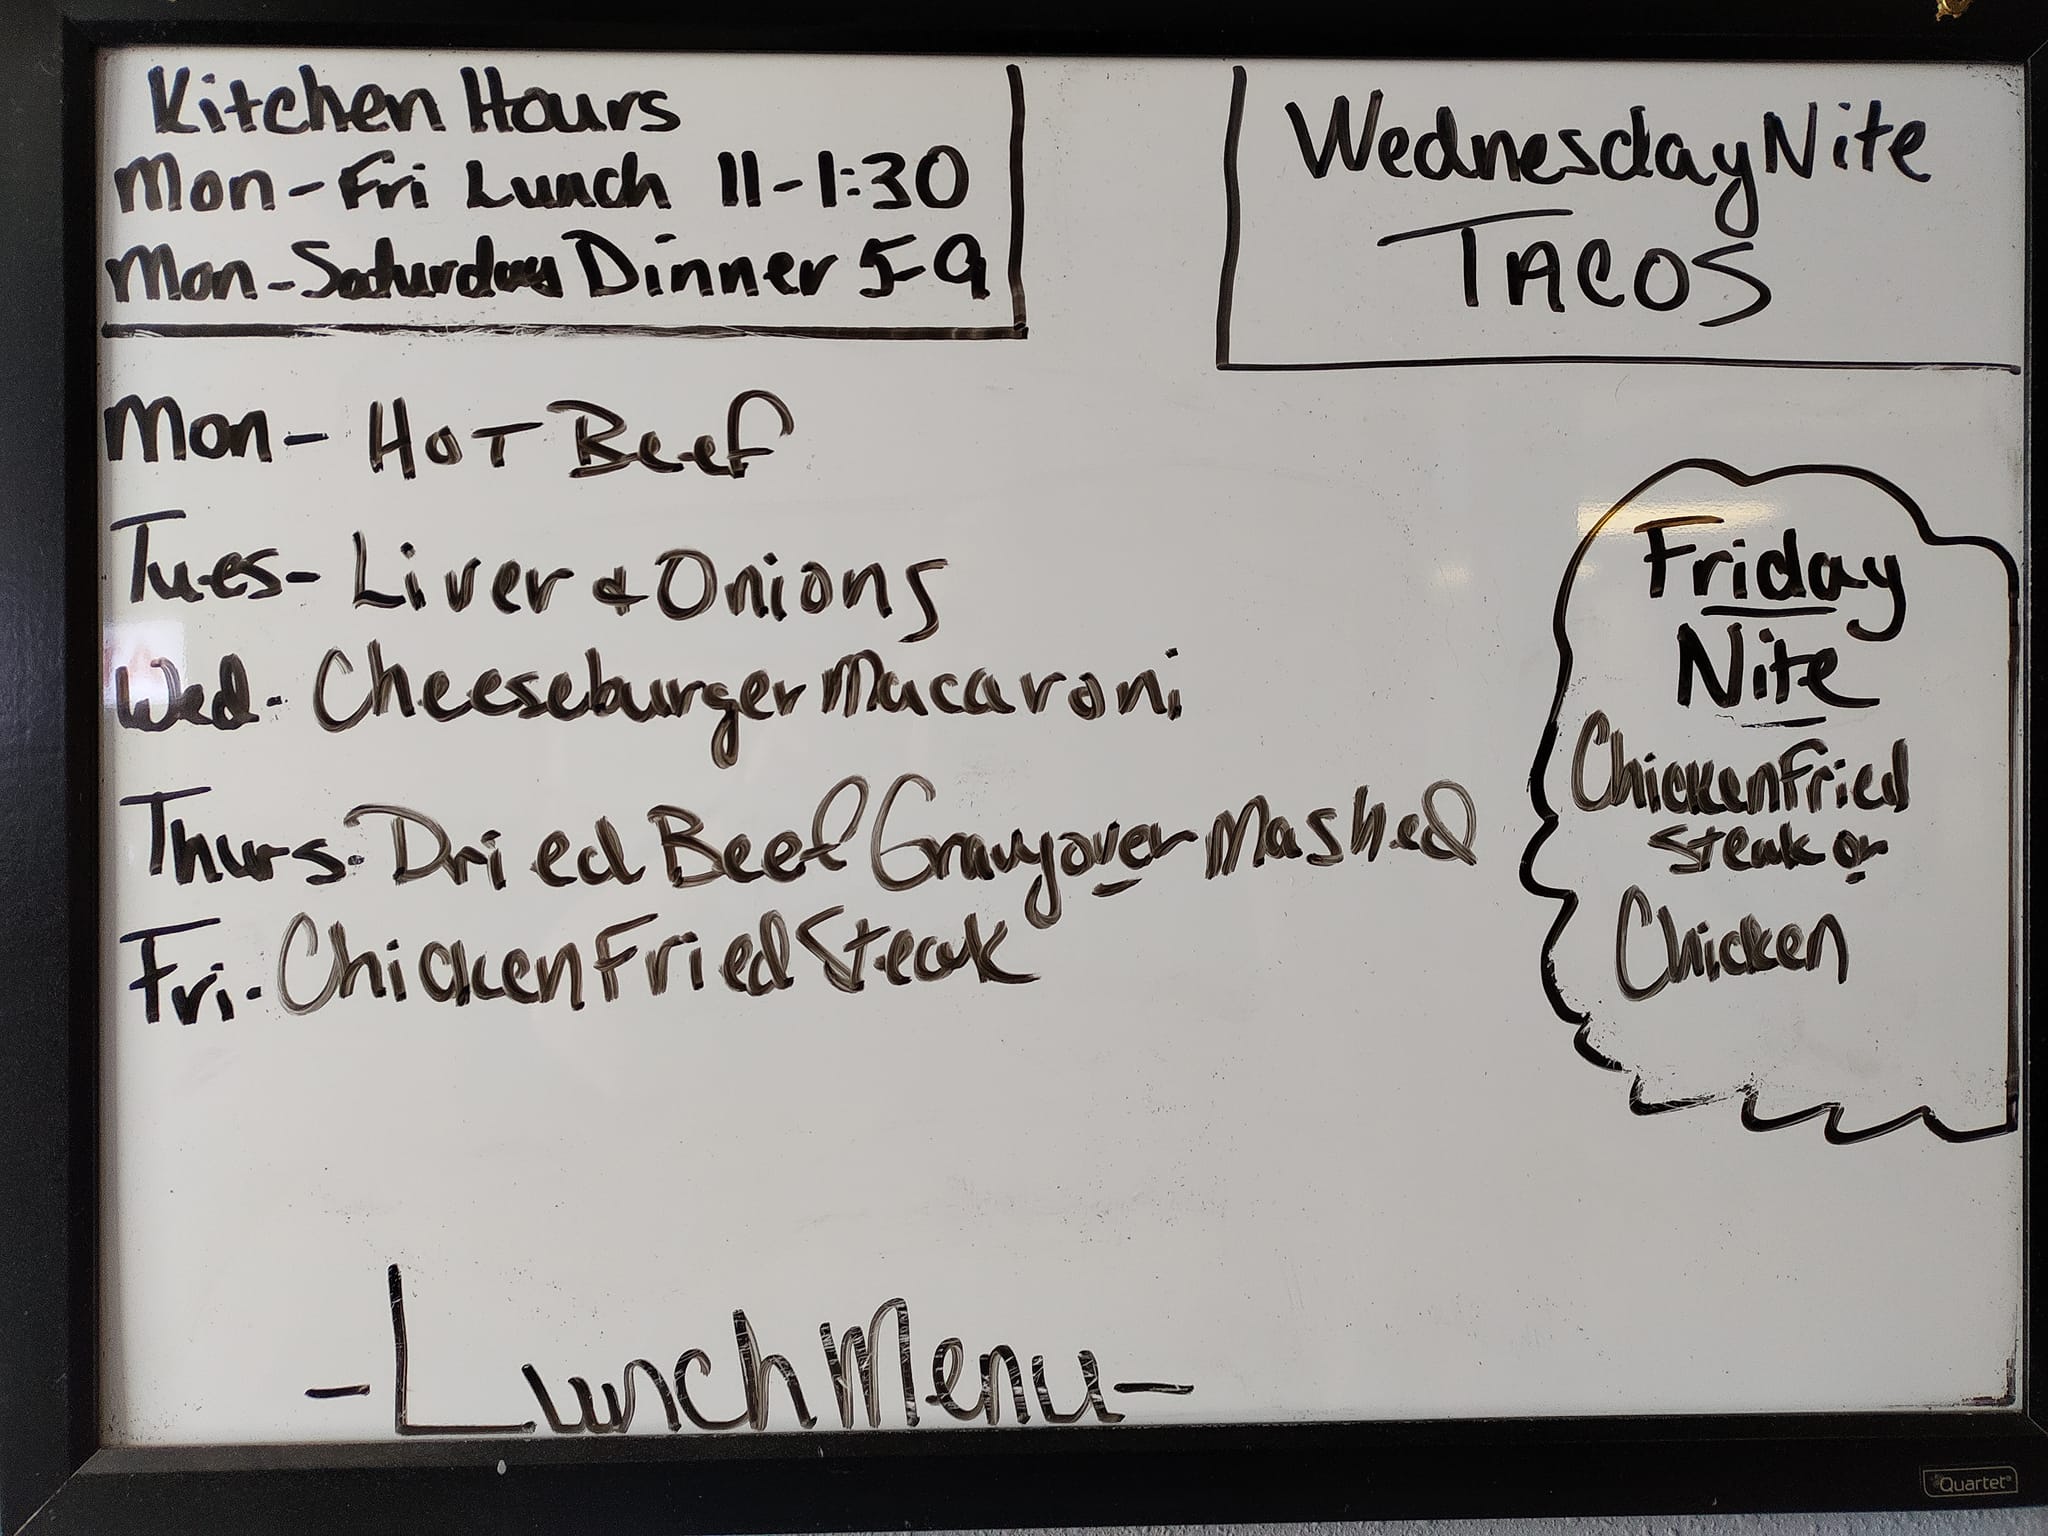 Kitchen Hours
Mon-Fri Lunch 11-1:30
Mon-Saturday Dinner 5-9
Wednesday Nite
TACOS
Mon- Hot Beef
Tues- Liver & Onions
Wed- Cheeseburger Macaroni
Thurs- Dried Beef Gravy over Mashed
Fri- Chicken Fried Steak
Friday
Nite
Chicken Fried
Steak or
Chicken
-Lunch Menu-
Quartet